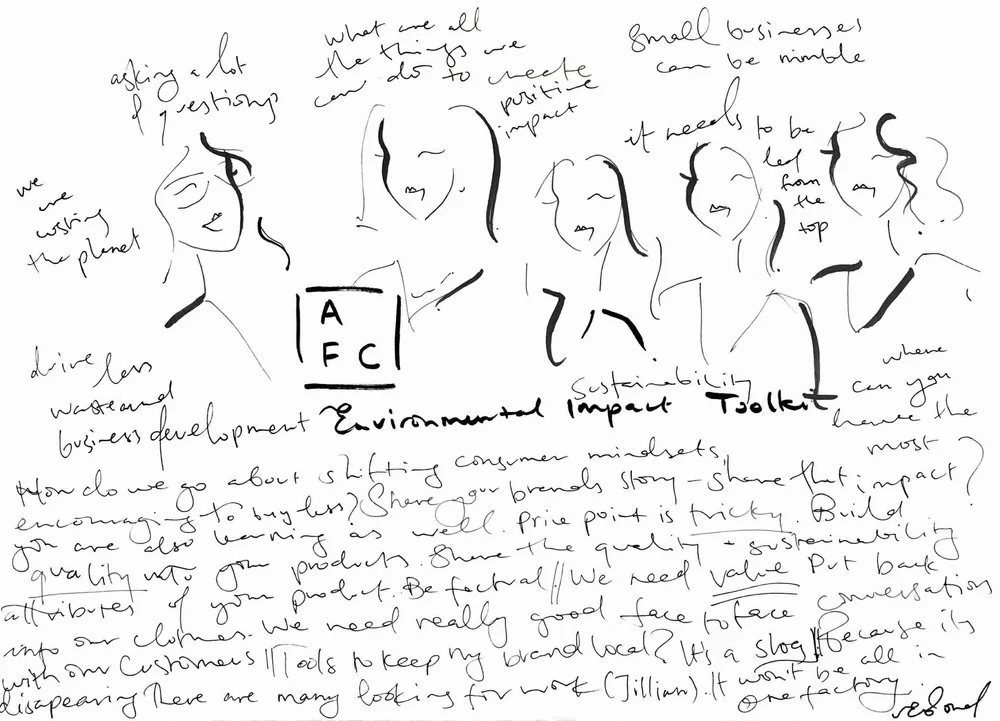 asking a lot
of questions
what are all
the things we
can do to create
positive
impact
Small businesses
can be nimble
it needs to be
led
from
the
top
we
are
the planet
A
F C
drive less
waste and
business development
Sustainability
Environmental Impact Toolkit
where
can you
have the
most
impact?
How do we go about shifting consumer mindsets,
encouraging to buy less? Share your brands story - share that
you are also learning as well. Price point is tricky. Build
quality into your products. Share the quality + sustainability
attributes of your product. Be factual // We need value put back
into our clothes. We need really good face to face conversation
with our customers // Tools to keep my brand local? It's a slog // Because its
disapearing There are many looking for work (Jillian). It won't be all in
one factory.